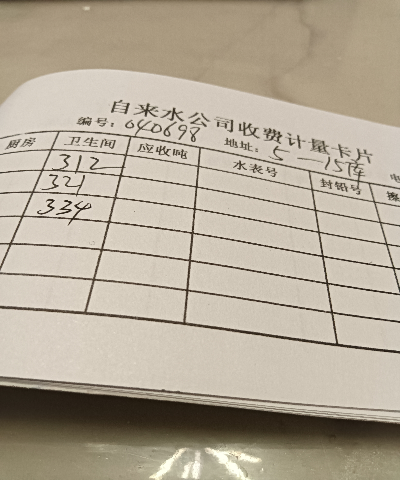 自来水公司收费计量卡片
编号：040698 地址：5—15
厨房 卫生间 应收吨 水表号 封铅号
312
321
334